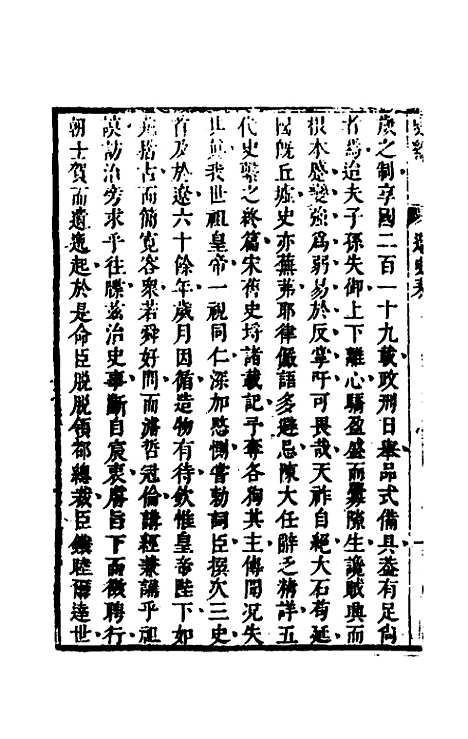 歲之制享國二百一十九載政刑日舉品式備具葢有足尙
者焉迨夫子孫失御上下離心驕盈盛而釁隙生讒賊興而
根本蹙變強爲弱易於反掌吁可畏哉天祚自絕大石苟延
國旣丘墟史亦蕪茀耶律儼語多避忌陳大任辭乏精詳五
代史繫之終篇宋舊史埒諸載記予奪各徇其主傳聞况失
其眞我世祖皇帝一視同仁深加愍惻嘗勅詞臣撰次三史
首及於遼六十餘年歲月因循造物有待欽惟皇帝陛下如
堯稽古而簡寬容衆若舜好問而濬哲冠倫講經兼講乎祖
謨訪治旁求乎往牒兹治史事斷自宸衷睿旨下而徵聘行
朝士賀而遺逸起於是命臣脫脫領都總裁臣鐵睦爾達世